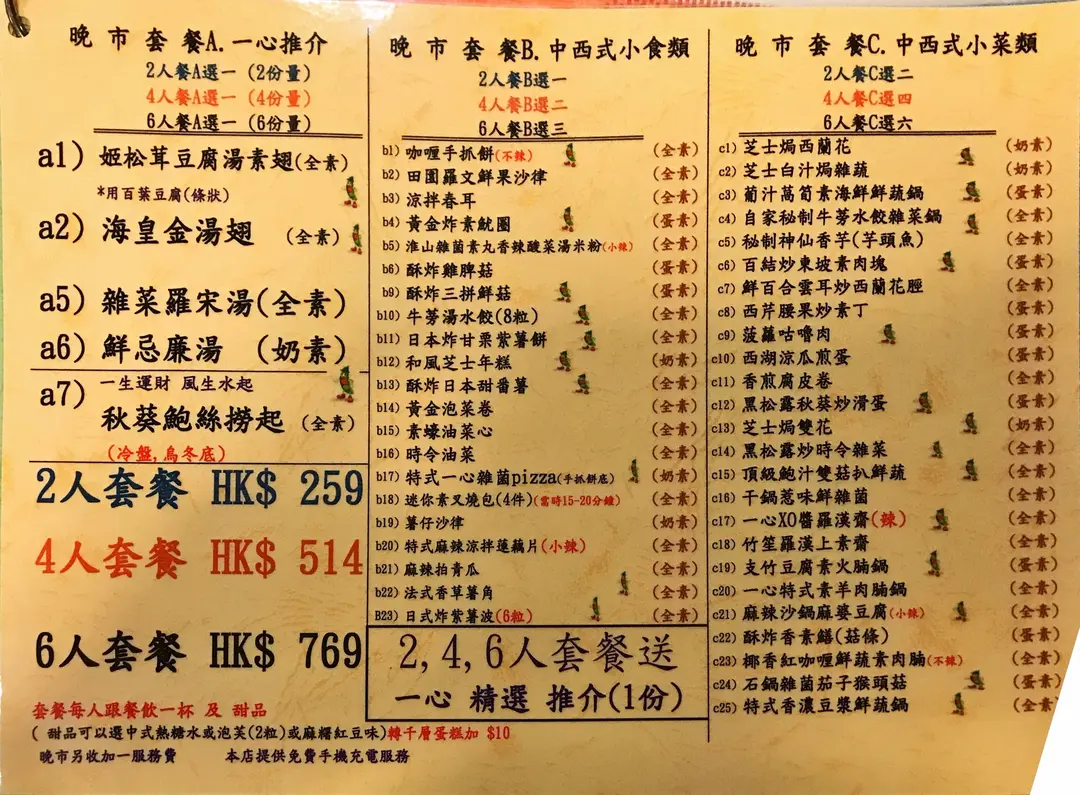 晚市套餐A.一心推介
2人餐A選一 (2份量)
4人餐A選一 (4份量)
6人餐A選一 (6份量)
a1) 姬松茸豆腐湯素翅(全素)
*用百葉豆腐(條狀)
a2) 海皇金湯翅 (全素)
a5) 雜菜羅宋湯(全素)
a6) 鮮忌廉湯 (奶素)
a7) 一生運財 風生水起
秋葵鮑絲撈起 (全素)
(冷盤,烏冬底)
2人套餐 HK$ 259
4人套餐 HK$ 514
6人套餐 HK$ 769
套餐每人跟餐飲一杯 及 甜品
( 甜品可以選中式熱糖水或泡芙(2粒)或麻糬紅豆味)轉千層蛋糕加 $10
晚市另收加一服務費 本店提供免費手機充電服務
晚市套餐B.中西式小食類
2人餐B選一
4人餐B選二
6人餐B選三
b1) 咖喱手抓餅(不辣) (全素)
b2) 田園羅文鮮果沙律 (全素)
b3) 涼拌春耳 (全素)
b4) 黃金炸素魷圈 (全素)
b5) 淮山雜菌素丸香辣酸菜湯米粉(小辣) (全素)
b6) 酥炸雞脾菇 (蛋素)
b9) 酥炸三拼鮮菇 (蛋素)
b10) 牛蒡湯水餃(8粒) (全素)
b11) 日本炸甘栗紫薯餅 (全素)
b12) 和風芝士年糕 (奶素)
b13) 酥炸日本甜番薯 (全素)
b14) 黃金泡菜卷 (全素)
b15) 素蠔油菜心 (全素)
b16) 時令油菜 (全素)
b17) 特式一心雜菌pizza(手抓餅底) (奶素)
b18) 迷你素叉燒包(4件)(當時15-20分鐘) (全素)
b19) 薯仔沙律 (奶素)
b20) 特式麻辣涼拌蓮藕片(小辣) (全素)
b21) 麻辣拍青瓜 (全素)
b22) 法式香草薯角 (全素)
B23) 日式炸紫薯波(6粒) (全素)
2,4,6人套餐送
一心 精選 推介(1份)
晚市套餐C.中西式小菜類
2人餐C選二
4人餐C選四
6人餐C選六
c1) 芝士焗西蘭花 (奶素)
c2) 芝士白汁焗雜蔬 (奶素)
c3) 葡汁萵筍素海鮮鮮蔬鍋 (蛋素)
c4) 自家秘制牛蒡水餃雜菜鍋 (全素)
c5) 秘制神仙香芋(芋頭魚) (全素)
c6) 百結炒東坡素肉塊 (蛋素)
c7) 鮮百合雲耳炒西蘭花脛 (全素)
c8) 西芹腰果炒素丁 (蛋素)
c9) 菠蘿咕嚕肉 (全素)
c10) 西湖涼瓜煎蛋 (蛋素)
c11) 香煎腐皮卷 (全素)
c12) 黑松露秋葵炒滑蛋 (蛋素)
c13) 芝士焗雙花 (奶素)
c14) 黑松露炒時令雜菜 (全素)
c15) 頂級鮑汁雙菇扒鮮蔬 (全素)
c16) 干鍋惹味鮮雜菌 (全素)
c17) 一心XO醬羅漢齋(辣) (全素)
c18) 竹笙羅漢上素齋 (全素)
c19) 支竹豆腐素火腩鍋 (蛋素)
c20) 一心特式素羊肉腩鍋 (全素)
c21) 麻辣沙鍋麻婆豆腐(小辣) (全素)
c22) 酥炸香素鱔(菇條) (蛋素)
c23) 椰香紅咖喱鮮蔬素肉腩(不辣) (全素)
c24) 石鍋雜菌茄子猴頭菇 (蛋素)
c25) 特式香濃豆漿鮮蔬鍋 (全素